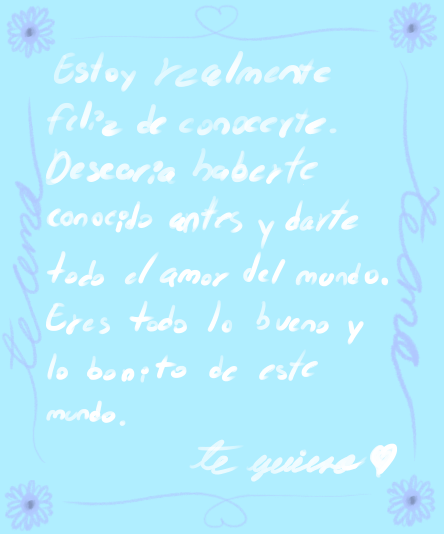 Estoy realmente
feliz de conocerte.
Desearia haberte
conocido antes y darte
todo el amor del mundo.
Eres todo lo bueno y
lo bonito de este
mundo.
te quiero